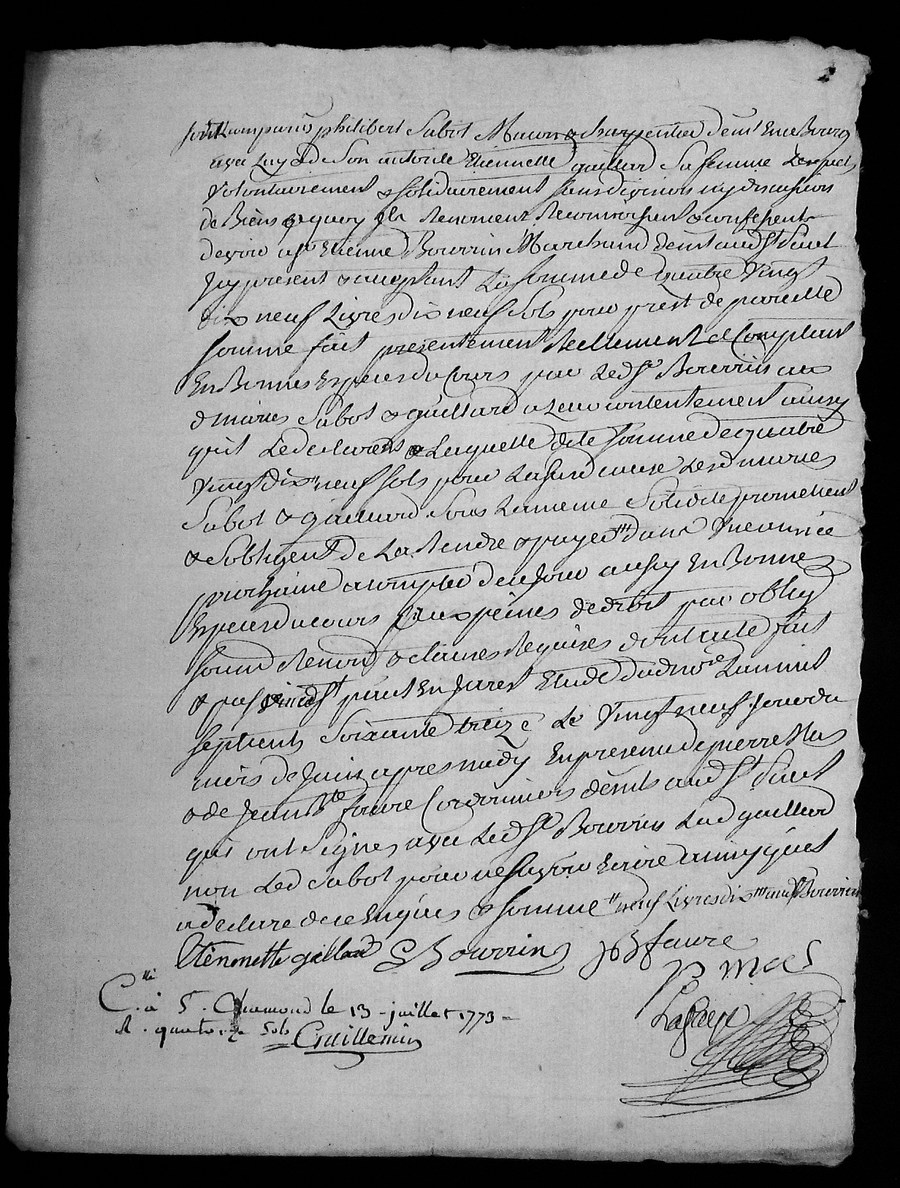 sont comparus philibert Sabot Masson & charpentier dem.t en ce Bourg
avec luy & de Son autorité Etiennette gaillard sa femme Lesquels
volontairement & solidairement sans division ny discution
de Biens a quoy ils Renoncent Reconnoissent & confessent
devoir a s.r Etienne Bourrin Marchand dem.t aud.t S.t paul
Icy present & acceptant La somme de quatre Vingt
dix neuf Livres dix neuf sols pour prest de pareille
somme fait presentement Reellement & Comptant
En Bonnes Especes du Cours par Led.t s.r Bourrin aux
d. mariés Sabot & gaillard a Leur contentement ainsy
qu'il Le declarent & Laquelle dite somme de quatre
vingt dix neuf sols pour La susd. cause Lesd. mariés
Sabot & gaillard sous La meme Solidité promettent
& s'obligent de La Rendre & payer dans Une année
prochaine a compter de ce jour aussy En Bonnes
Especes du cours aux peines de droit par oblig.
soum. Renon. & clauses Requises dont acte fait
& passé aud.t S.t paul En Jarest Etude dud. no.re L'an mil
sept cents Soixante treize Le Vingt neuf jour du
mois de Juin apres midy En presence de pierre Mas
& de Jean B.te faure Cordonniers dem.ts aud.t S.t paul
qui ont Signés avec Led.t s.r Bourrin La d. gaillard
non Led. Sabot pour ne sçavoir Ecrire ainsy qu'il
a declaré de ce Enquis & somme neuf Livres dix neuf Bourrin
Etiennette gallard E Bourrin JB faure
P mas
C.lé à S. Chamond le 13 juillet 1773
R. quatorze sols Guillemin